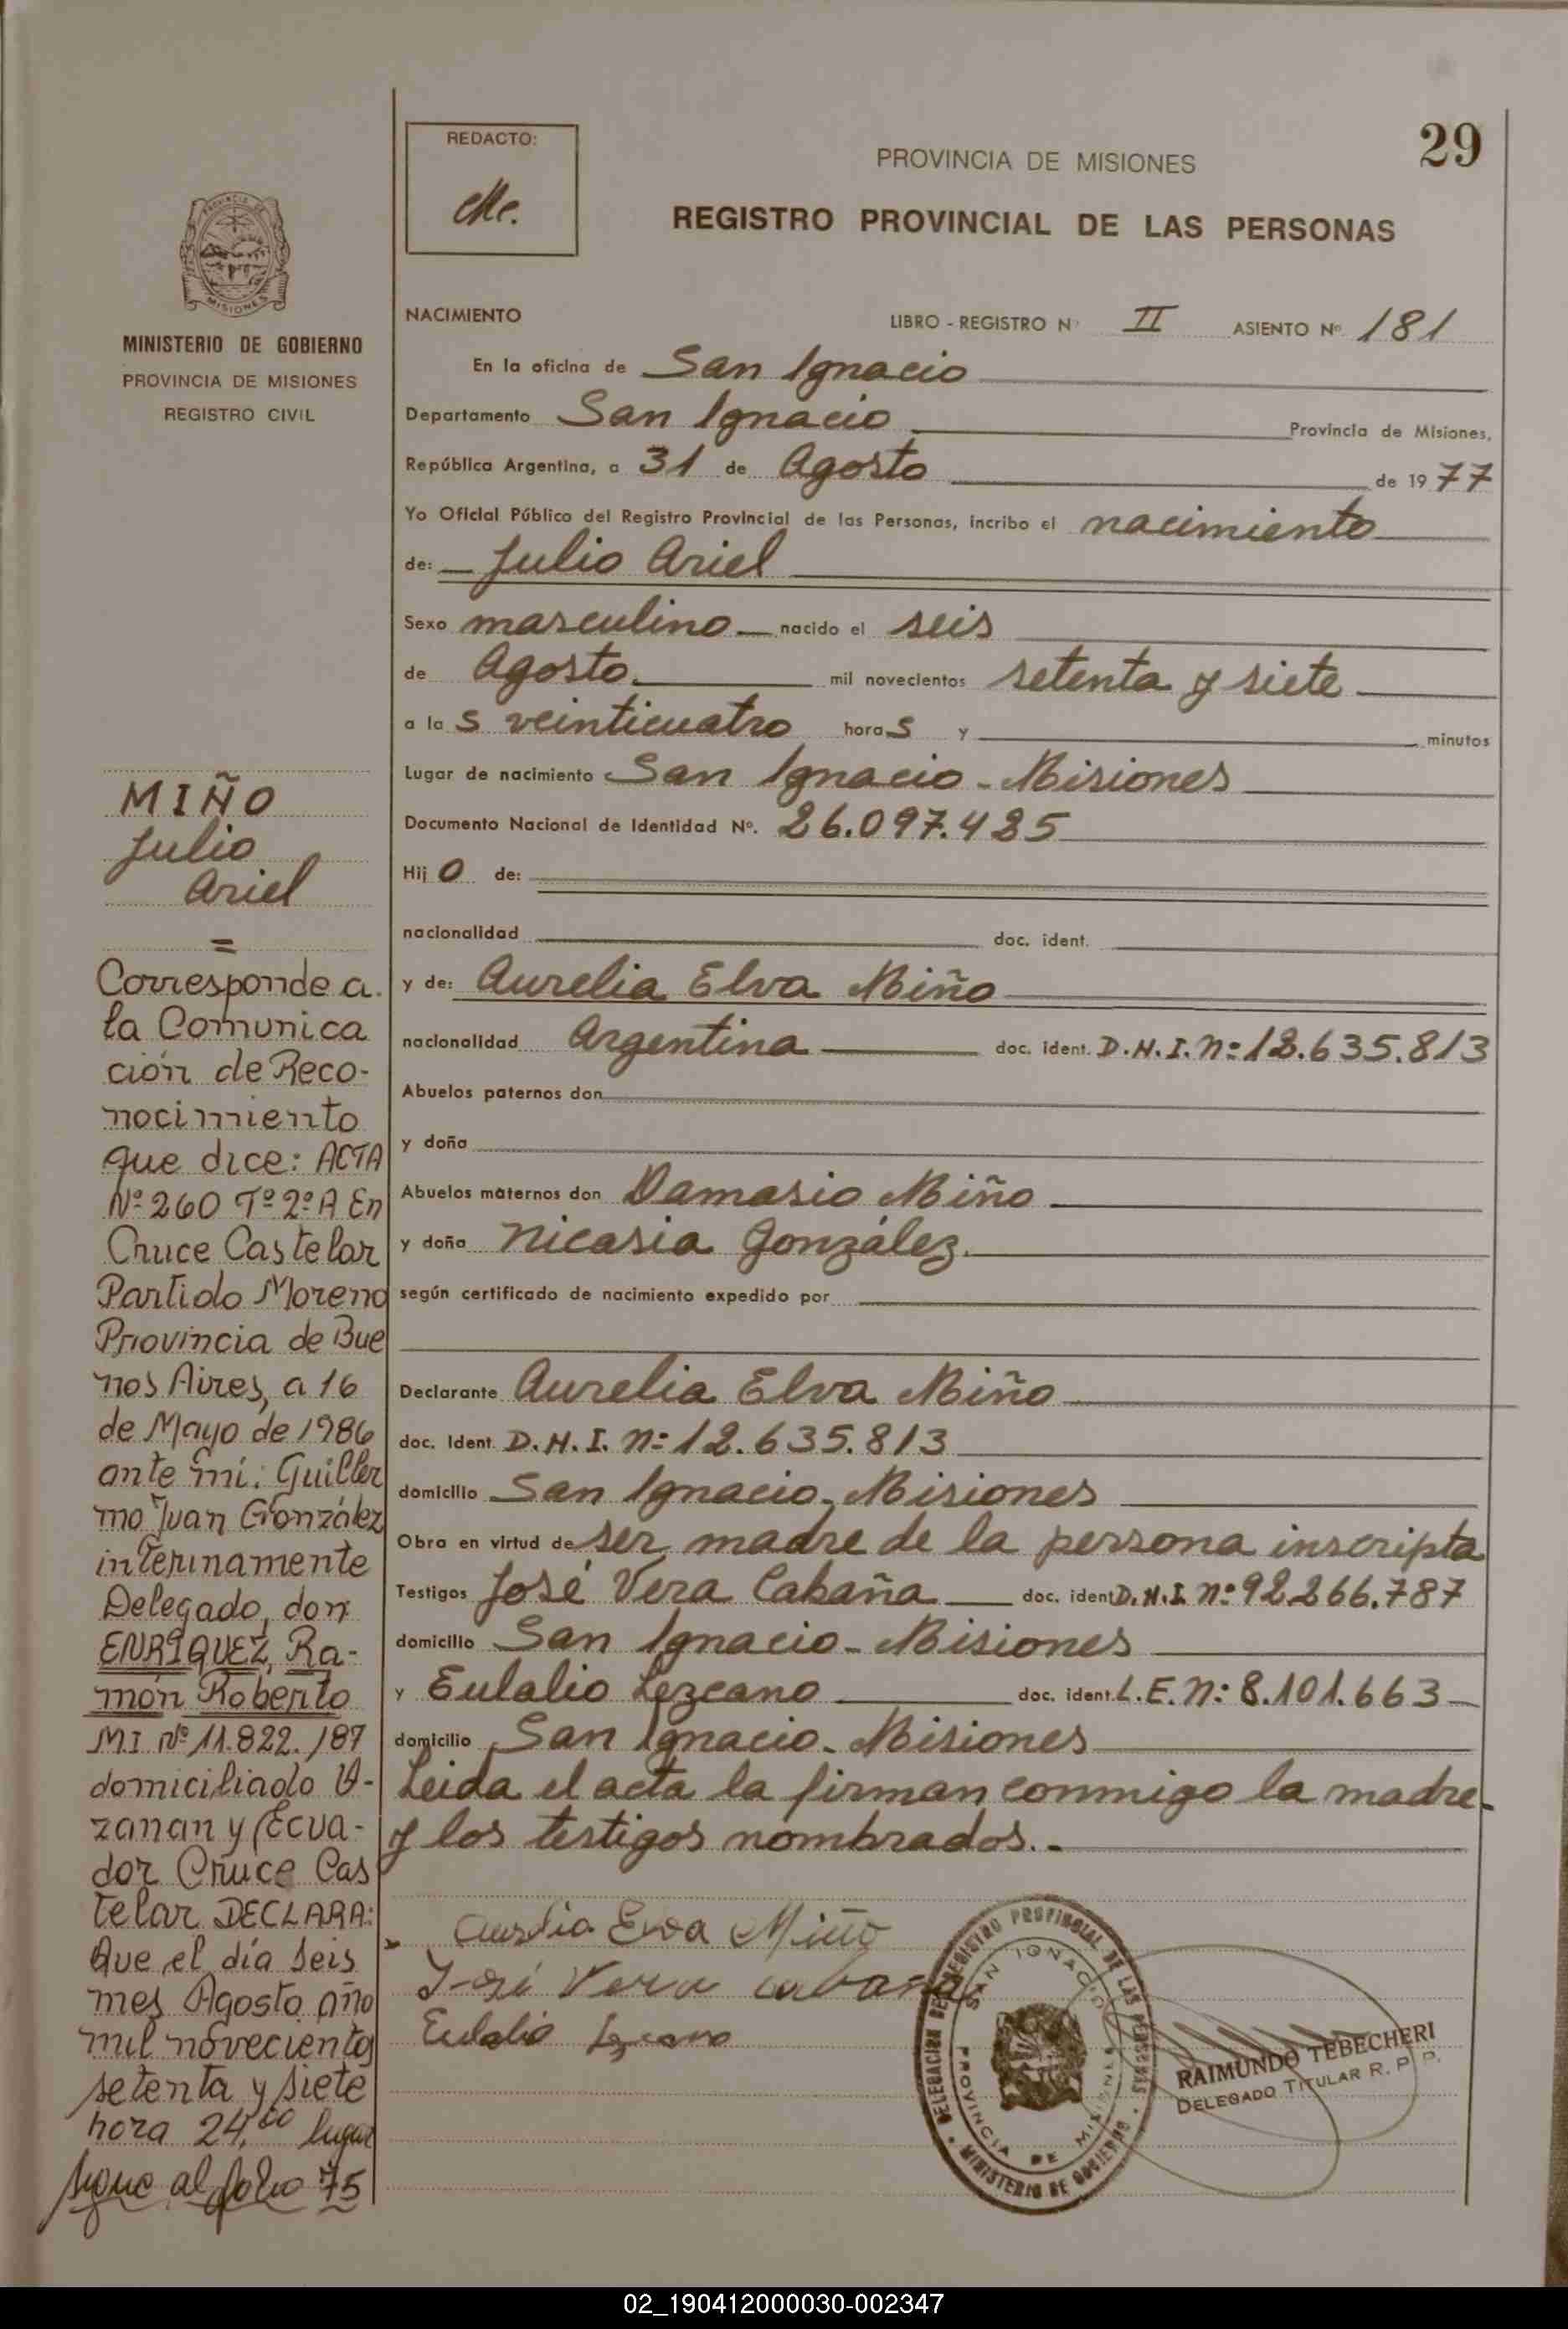 29
REDACTO:
PROVINCIA DE MISIONES
REGISTRO PROVINCIAL DE LAS PERSONAS
MINISTERIO DE GOBIERNO
PROVINCIA DE MISIONES
REGISTRO CIVIL
NACIMIENTO LIBRO - REGISTRO Nº II ASIENTO Nº 181
En la oficina de San Ignacio
Departamento San Ignacio Provincia de Misiones,
República Argentina, a 31 de Agosto de 1977
Yo Oficial Público del Registro Provincial de las Personas, incribo el nacimiento
de: Julio Ariel
Sexo masculino nacido el seis
de Agosto. mil novecientos setenta y siete
a las veinticuatro horas y minutos
Lugar de nacimiento San Ignacio - Misiones
Documento Nacional de Identidad Nº. 26.097.485
Hijo de:
nacionalidad doc. ident.
y de: Aurelia Elva Miño
nacionalidad Argentina doc. ident. D.N.I. Nº 12.635.813
Abuelos paternos don
y doña
Abuelos maternos don Damasio Miño
y doña Nicasia González.
según certificado de nacimiento expedido por
Declarante Aurelia Elva Miño
doc. Ident. D.N.I. Nº 12.635.813
domicilio San Ignacio. Misiones
Obra en virtud de ser madre de la persona inscripta
Testigos José Vera Cabaña doc. ident D.N.I. Nº 92.266.787
domicilio San Ignacio - Misiones
y Eulalio Lezcano doc. ident. L.E. Nº 8.101.663
domicilio San Ignacio - Misiones
Leida el acta la firman conmigo la madre
y los testigos nombrados.-
Aurelia Elva Miño
José Vera Cabaña
Eulalio Lezcano
DELEGACION DEL REGISTRO PROVINCIAL DE LAS PERSONAS
SAN IGNACIO
PROVINCIA DE MISIONES
MINISTERIO DE GOBIERNO
RAIMUNDO TEBECHERI
DELEGADO TITULAR R. P. P.
MIÑO
Julio
Ariel
=
Corresponde a
la Comunica
ción de Reco-
nocimiento
que dice: ACTA
Nº 260 Tº 2º A En
Cruce Castelar
Partido Moreno
Provincia de Bue
nos Aires, a 16
de Mayo de 1986
ante mí: Guiller
mo Juan González
interinamente
Delegado, don
ENRIQUEZ, Ra-
món Roberto
MI Nº 11.822.187
domiciliado
y Ecua-
dor Cruce Cas
telar DECLARA:
Que el día seis
mes Agosto año
mil novecientos
setenta y siete
hora 24,00 lugar
sigue al folio 75
02_190412000030-002347